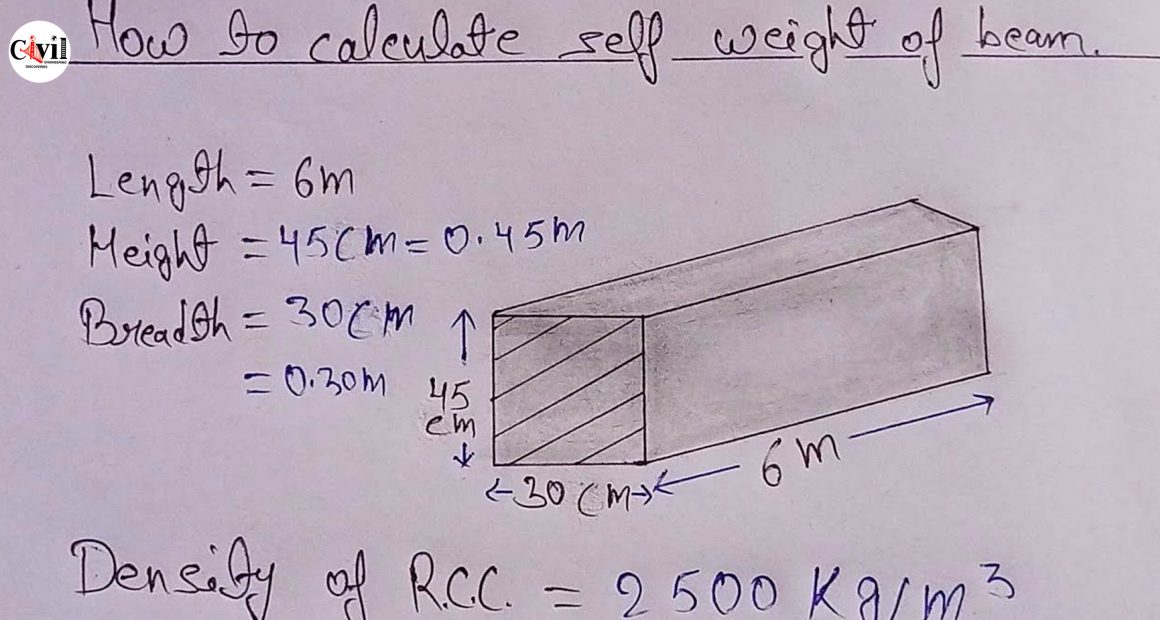 Civil
ENGINEERING
DISCOVERIES
How to calculate self weight of beam.
Length = 6m
Height = 45cm = 0.45m
Breadth = 30cm
= 0.30m
45
cm
30cm
6m
Density of R.C.C. = 2500 Kg/m³